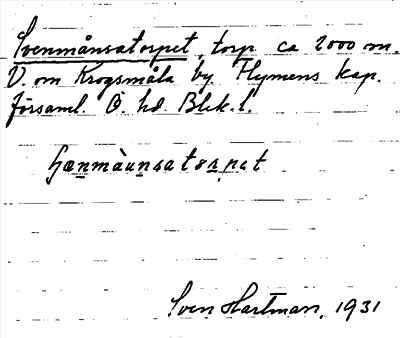 Svenmånsatorpet, torp ca 2000 m.
V. om Krogsmåla by. Flymens kap.
församl. Ö. hd. Blek. l.
Sven Hartman, 1931